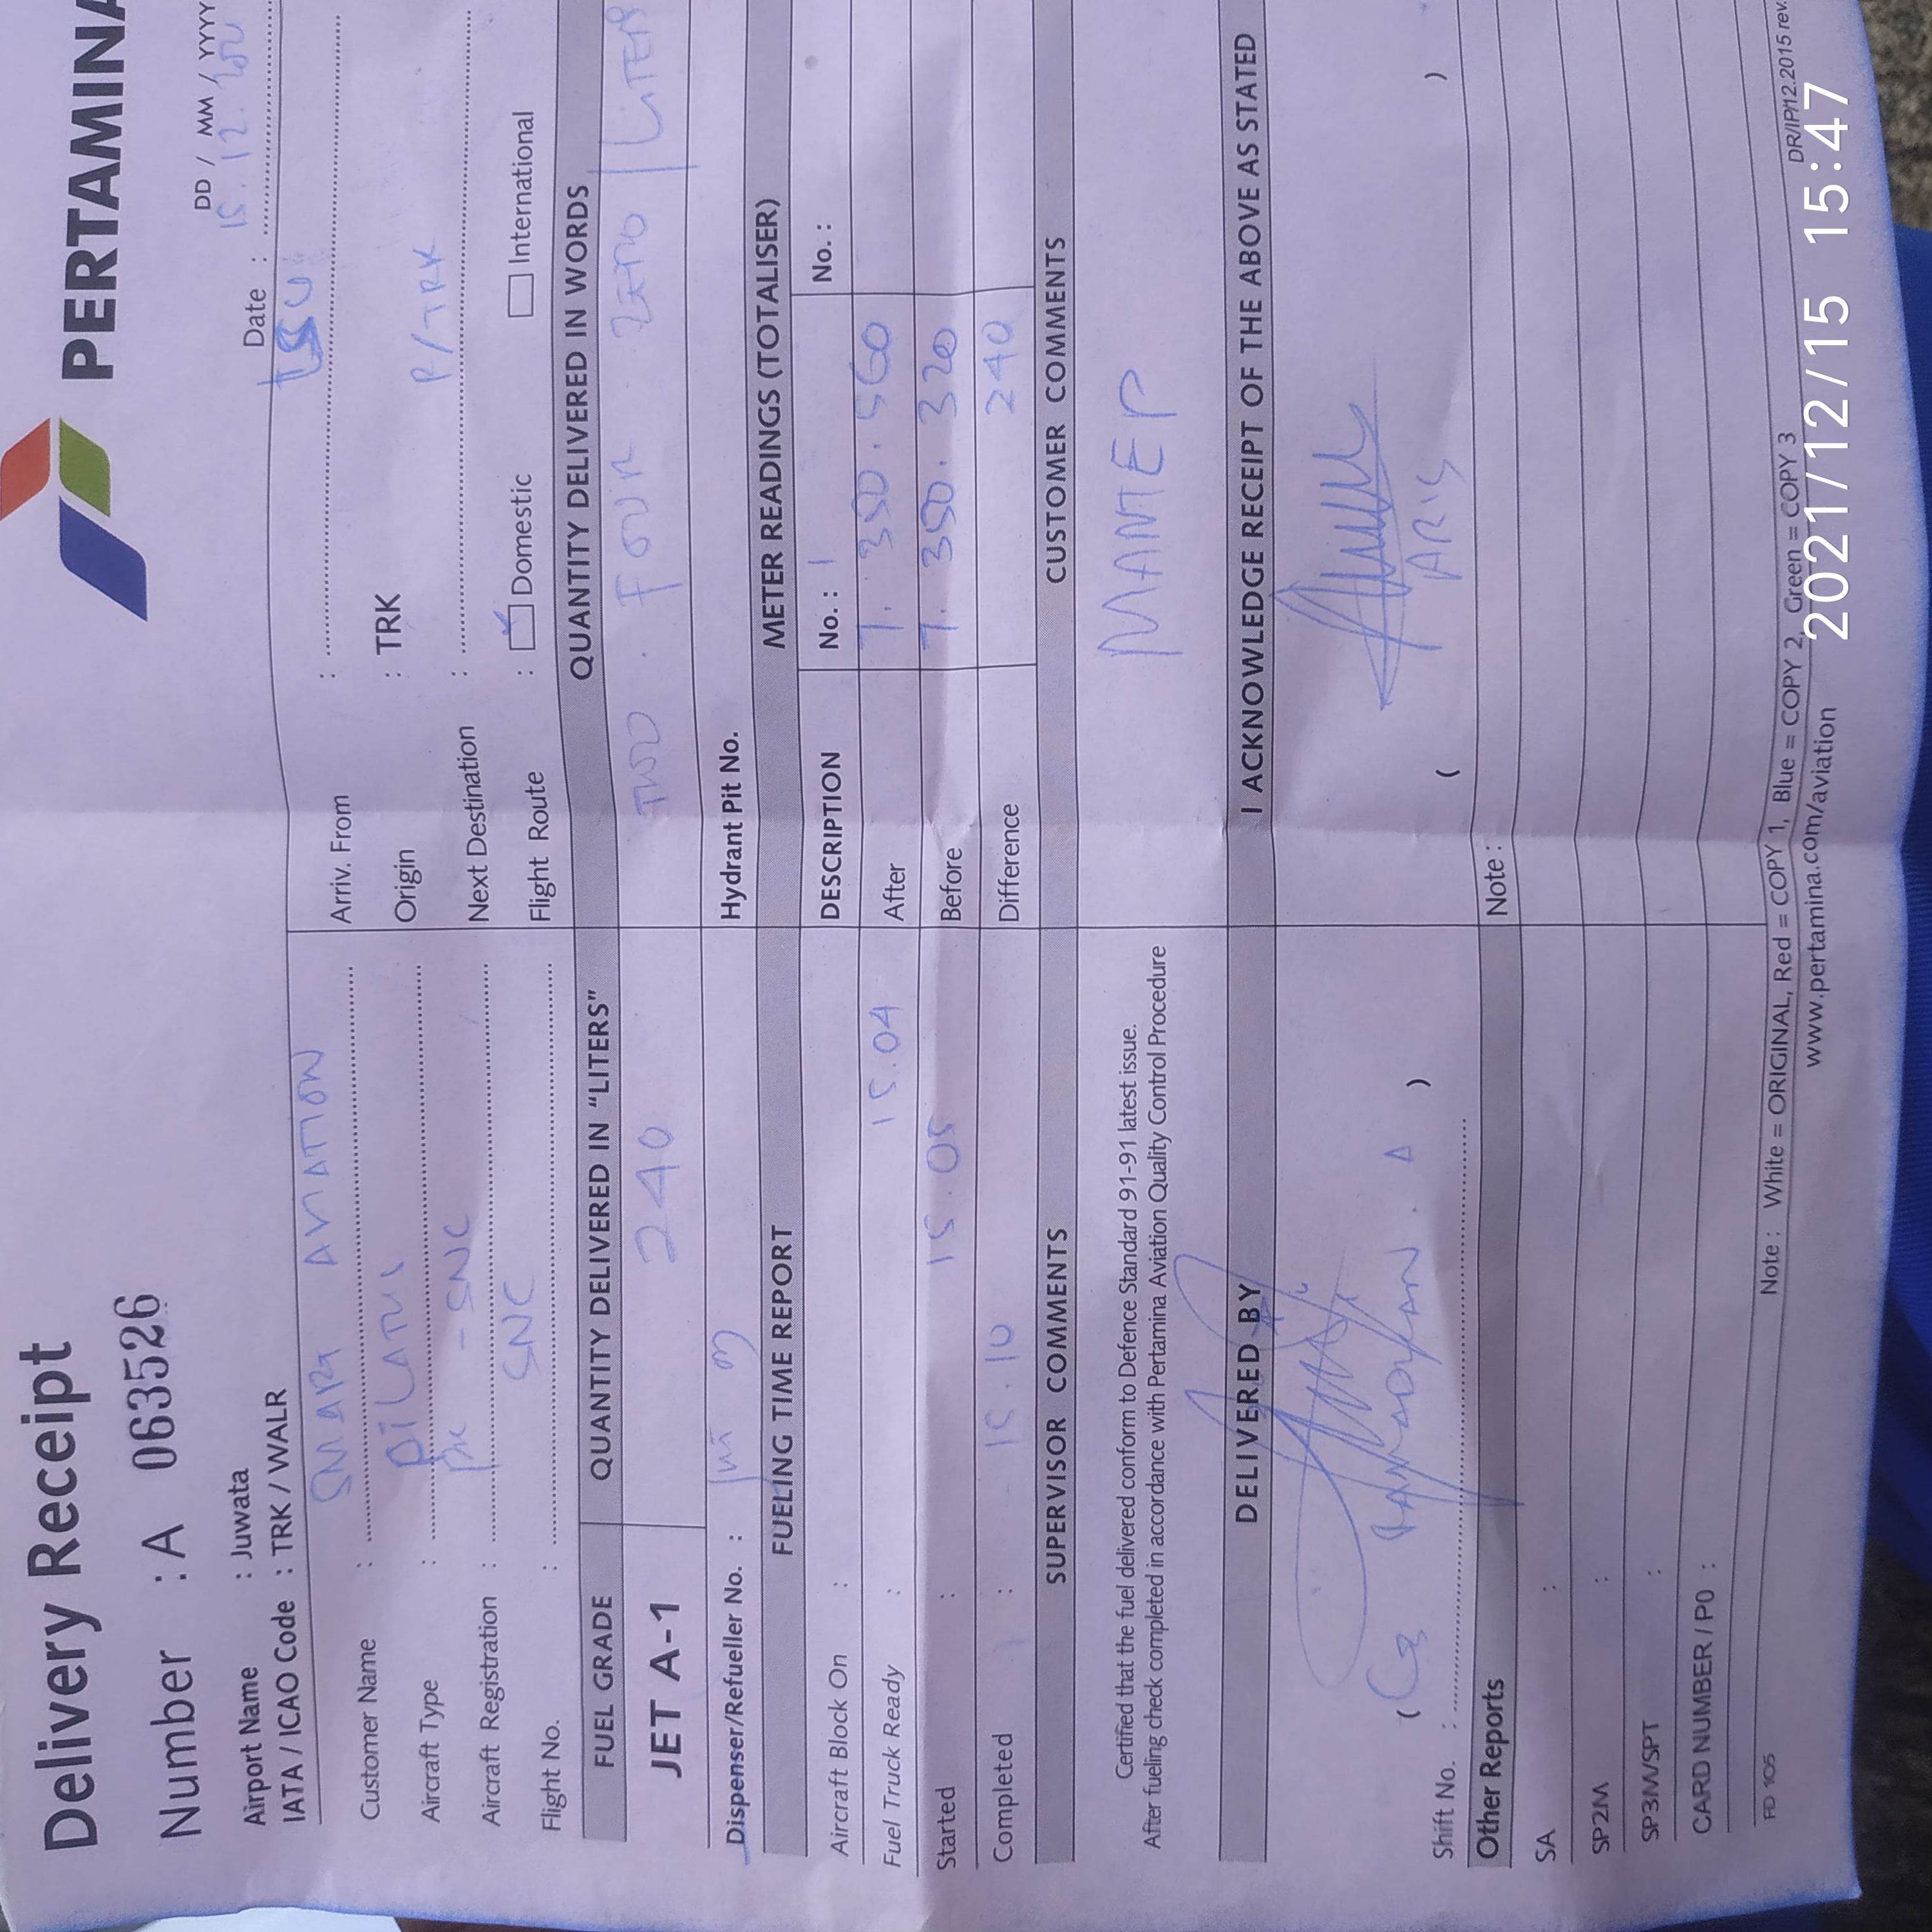 Delivery Receipt
PERTAMINA
Number : A 063526
DD / MM / YYYY
Date : 15. 12.
Airport Name : Juwata
IATA / ICAO Code : TRK / WALR
Customer Name : SMART AVIATION
Arriv. From :
Aircraft Type : PILATUS
Origin : TRK
Aircraft Registration : PK - SNC
Next Destination : P/TRK
Flight No. : SNC
Flight Route : Domestic International
FUEL GRADE QUANTITY DELIVERED IN "LITERS" QUANTITY DELIVERED IN WORDS
JET A-1 240 TWO . FOUR . ZERO / LITER
Dispenser/Refueller No. :
Hydrant Pit No.
FUELING TIME REPORT METER READINGS (TOTALISER)
Aircraft Block On :
DESCRIPTION No. : 1 No. :
Fuel Truck Ready : 15.04
After 7. 350. 560
Started : 15.05
Before 7. 350. 320
Completed : 15.10
Difference 240
SUPERVISOR COMMENTS CUSTOMER COMMENTS
Certified that the fuel delivered conform to Defence Standard 91-91 latest issue.
After fueling check completed in accordance with Pertamina Aviation Quality Control Procedure
MANTEP
DELIVERED BY I ACKNOWLEDGE RECEIPT OF THE ABOVE AS STATED
( )
( ARIS )
Shift No. :
Other Reports Note :
SA :
SP2M :
SP3M/SPT :
CARD NUMBER / P0 :
FD 105
Note : White = ORIGINAL, Red = COPY 1, Blue = COPY 2, Green = COPY 3
DR/IP/12.2015 rev.
www.pertamina.com/aviation
2021/12/15 15:47